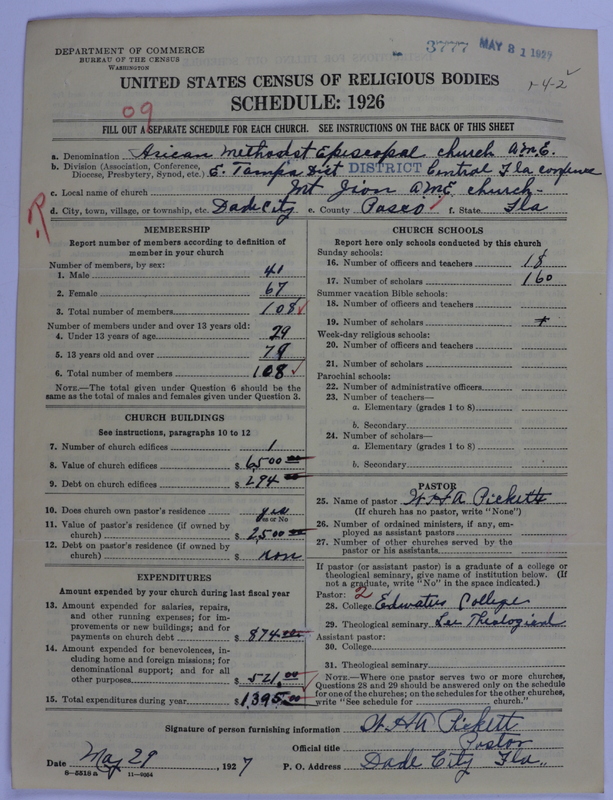 DEPARTMENT OF COMMERCE
BUREAU OF THE CENSUS
WASHINGTON
3777 MAY 31 1927
r-4-2
UNITED STATES CENSUS OF RELIGIOUS BODIES
SCHEDULE: 1926
09
FILL OUT A SEPARATE SCHEDULE FOR EACH CHURCH. SEE INSTRUCTIONS ON THE BACK OF THIS SHEET
a. Denomination African Methodist Episcopal church A.M.E.
b. Division (Association, Conference, Diocese, Presbytery, Synod, etc.) E. Tampa Dist DISTRICT Central Fla conference
c. Local name of church Mt Zion A.M.E. church-
d. City, town, village, or township, etc. Dade City e. County Pasco f. State Fla
MEMBERSHIP
Report number of members according to definition of
member in your church
Number of members, by sex:
1. Male 41
2. Female 67
3. Total number of members 108
Number of members under and over 13 years old:
4. Under 13 years of age 29
5. 13 years old and over 79
6. Total number of members 108
NOTE.—The total given under Question 6 should be
same as the total of males and females given under Question 3.
CHURCH BUILDINGS
See instructions, paragraphs 10 to 12
7. Number of church edifices 1
8. Value of church edifices $ 6,500 00
9. Debt on church edifices $ 294 00
10. Does church own pastor's residence yes
Yes or No
11. Value of pastor's residence (if owned by
church) $ 2,500 00
12. Debt on pastor's residence (if owned by
church) $ none
EXPENDITURES
Amount expended by your church during last fiscal year
13. Amount expended for salaries, repairs,
and other running expenses; for im-
provements or new buildings; and for
payments on church debt $ 874 00
14. Amount expended for benevolences, in-
cluding home and foreign missions; for
denominational support; and for all
other purposes $ 521.00
15. Total expenditures during year $ 1,395.00
CHURCH SCHOOLS
Report here only schools conducted by this church
Sunday schools:
16. Number of officers and teachers 18
17. Number of scholars 160
Summer vacation Bible schools:
18. Number of officers and teachers
19. Number of scholars
Week-day religious schools:
20. Number of officers and teachers
21. Number of scholars
Parochial schools:
22. Number of administrative officers
23. Number of teachers—
a. Elementary (grades 1 to 8)
b. Secondary
24. Number of scholars—
a. Elementary (grades 1 to 8)
b. Secondary
PASTOR
25. Name of pastor W H A Picketts
(If church has no pastor, write "None")
26. Number of ordained ministers, if any, em-
ployed as assistant pastors
27. Number of other churches served by the
pastor or his assistants
If pastor (or assistant pastor) is a graduate of a college or
theological seminary, give name of institution below. (If
not a graduate, write "No" in the space indicated.)
Pastor: 2
28. College Edwaters College
29. Theological seminary Lee Theological
Assistant pastor:
30. College
31. Theological seminary
NOTE.—Where one pastor serves two or more churches,
Questions 28 and 29 should be answered only on the schedule
for one of the churches; on the schedules for the other churches,
write "See schedule for church."
Signature of person furnishing information W H A Pickett
Official title Pastor
Date May 29, 1927 P. O. Address Dade City Fla.
8-5518 a 11-9204